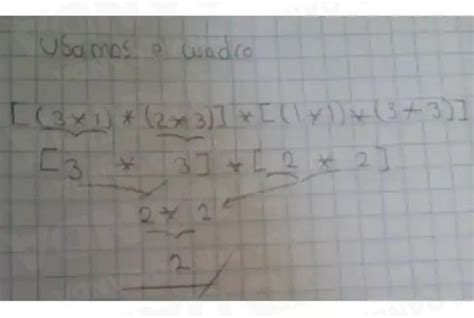 Usamos el cuadro
[(3*1)*(2*3)]*[(1*1)*(3*3)]
[3 * 3]*[2 * 2]
2*2
2